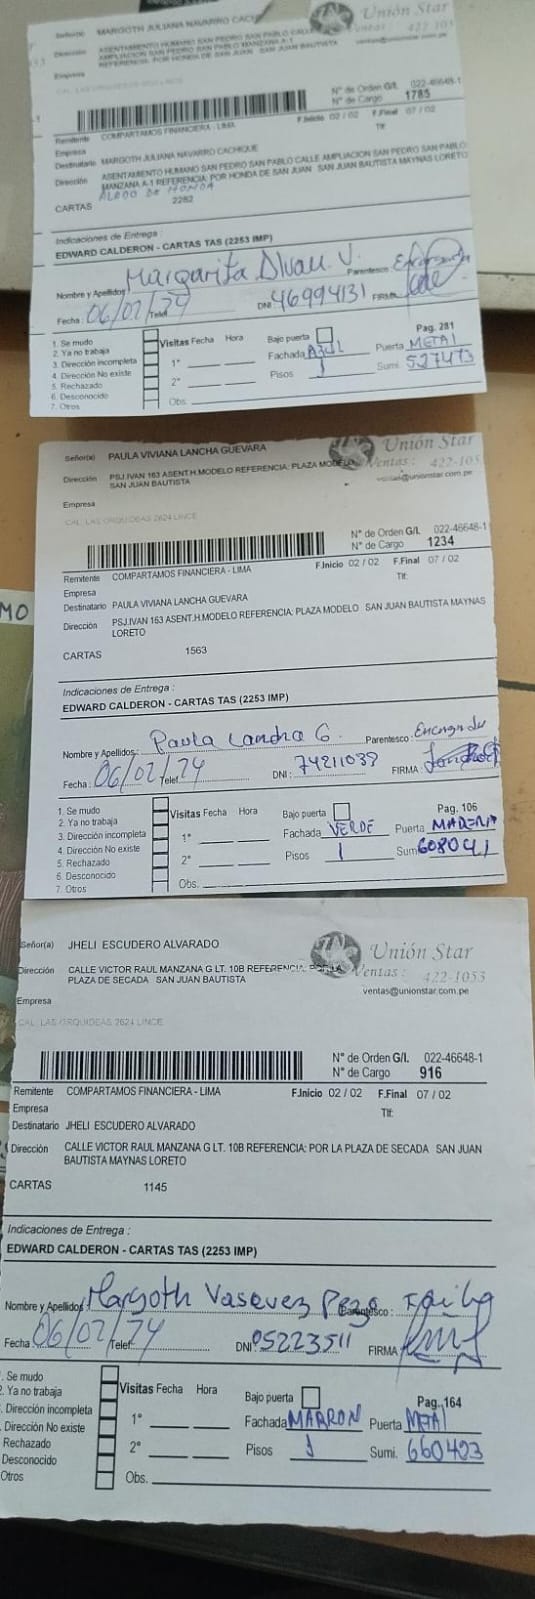 Señor(a) MARGOTH JULIANA NAVARRO CACHIQUE
Unión Star
Dirección ASENTAMIENTO HUMANO SAN PEDRO SAN PABLO
AMPLIACION SAN PEDRO SAN PABLO MANZANA A-1
REFERENCIA: POR HONDA DE SAN JUAN SAN JUAN BAUTISTA
Ventas: 422-105
ventas@unionstar.com.pe
Empresa
N° de Orden G/I. 022-46648-1
N° de Cargo 1785
Remitente COMPARTAMOS FINANCIERA - LIMA
F.Inicio 02 / 02 F.Final 07 / 02
Empresa
Tlf:
Destinatario MARGOTH JULIANA NAVARRO CACHIQUE
Dirección ASENTAMIENTO HUMANO SAN PEDRO SAN PABLO CALLE AMPLIACION SAN PEDRO SAN PABLO
MANZANA A-1 REFERENCIA: POR HONDA DE SAN JUAN SAN JUAN BAUTISTA MAYNAS LORETO
ALADO DE HONDA
CARTAS 2282
Indicaciones de Entrega :
EDWARD CALDERON - CARTAS TAS (2253 IMP)
Nombre y Apellidos: Margarita Alvan V. Parentesco:
Fecha: 06/02/24 Telef. DNI: 46994131 FIRMA
1. Se mudo
2. Ya no trabaja
3. Dirección incompleta
4. Dirección No existe
5. Rechazado
6. Desconocido
7. Otros
Visitas Fecha Hora
1°
2°
Obs.
Bajo puerta
Pag. 281
Fachada AZUL Puerta METAL
Pisos 1 Sumi. 527473
Señor(a) PAULA VIVIANA LANCHA GUEVARA
Unión Star
Dirección PSJ.IVAN 163 ASENT.H.MODELO REFERENCIA: PLAZA MODELO
SAN JUAN BAUTISTA
Ventas: 422-1053
ventas@unionstar.com.pe
Empresa
CAL. LAS ORQUIDEAS 2624 LINCE
N° de Orden G/I. 022-46648-1
N° de Cargo 1234
Remitente COMPARTAMOS FINANCIERA - LIMA
F.Inicio 02 / 02 F.Final 07 / 02
Empresa
Tlf:
Destinatario PAULA VIVIANA LANCHA GUEVARA
Dirección PSJ.IVAN 163 ASENT.H.MODELO REFERENCIA: PLAZA MODELO SAN JUAN BAUTISTA MAYNAS
LORETO
CARTAS 1563
Indicaciones de Entrega :
EDWARD CALDERON - CARTAS TAS (2253 IMP)
Nombre y Apellidos: Paula Lancha G. Parentesco:
Fecha: 06/02/24 Telef. DNI: 74211039 FIRMA:
1. Se mudo
2. Ya no trabaja
3. Dirección incompleta
4. Dirección No existe
5. Rechazado
6. Desconocido
7. Otros
Visitas Fecha Hora
1°
2°
Obs.
Bajo puerta
Pag. 106
Fachada VERDE Puerta MADERA
Pisos 1 Sumi. 608041
Señor(a) JHELI ESCUDERO ALVARADO
Unión Star
Dirección CALLE VICTOR RAUL MANZANA G LT. 10B REFERENCIA: POR LA
PLAZA DE SECADA SAN JUAN BAUTISTA
Ventas: 422-1053
ventas@unionstar.com.pe
Empresa
CAL. LAS ORQUIDEAS 2624 LINCE
N° de Orden G/I. 022-46648-1
N° de Cargo 916
Remitente COMPARTAMOS FINANCIERA - LIMA
F.Inicio 02 / 02 F.Final 07 / 02
Empresa
Tlf:
Destinatario JHELI ESCUDERO ALVARADO
Dirección CALLE VICTOR RAUL MANZANA G LT. 10B REFERENCIA: POR LA PLAZA DE SECADA SAN JUAN
BAUTISTA MAYNAS LORETO
CARTAS 1145
Indicaciones de Entrega :
EDWARD CALDERON - CARTAS TAS (2253 IMP)
Nombre y Apellidos: Margoth Vasquez Pezo Parentesco:
Fecha: 06/02/24 Telef. DNI: 05223511 FIRMA
. Se mudo
2. Ya no trabaja
. Dirección incompleta
Dirección No existe
Rechazado
Desconocido
Otros
Visitas Fecha Hora
1°
2°
Obs.
Bajo puerta
Pag. 164
Fachada MARRON Puerta METAL
Pisos 1 Sumi. 660403